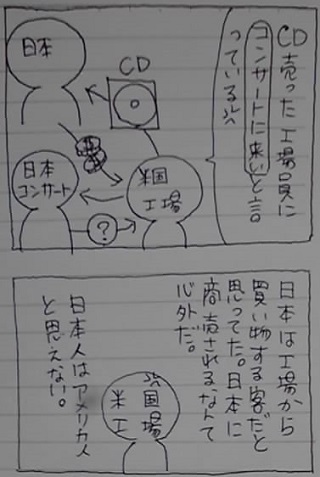 CD売った工場員に
コンサートに来いと言
っている
CD
日本
$
米国
工場
日本
コンサート
?
日本は工場から
買い物する客だと
思ってた。日本に
商売されるなんて
心外だ。
米国
工場
日本人はアメリカ人
と思えない。